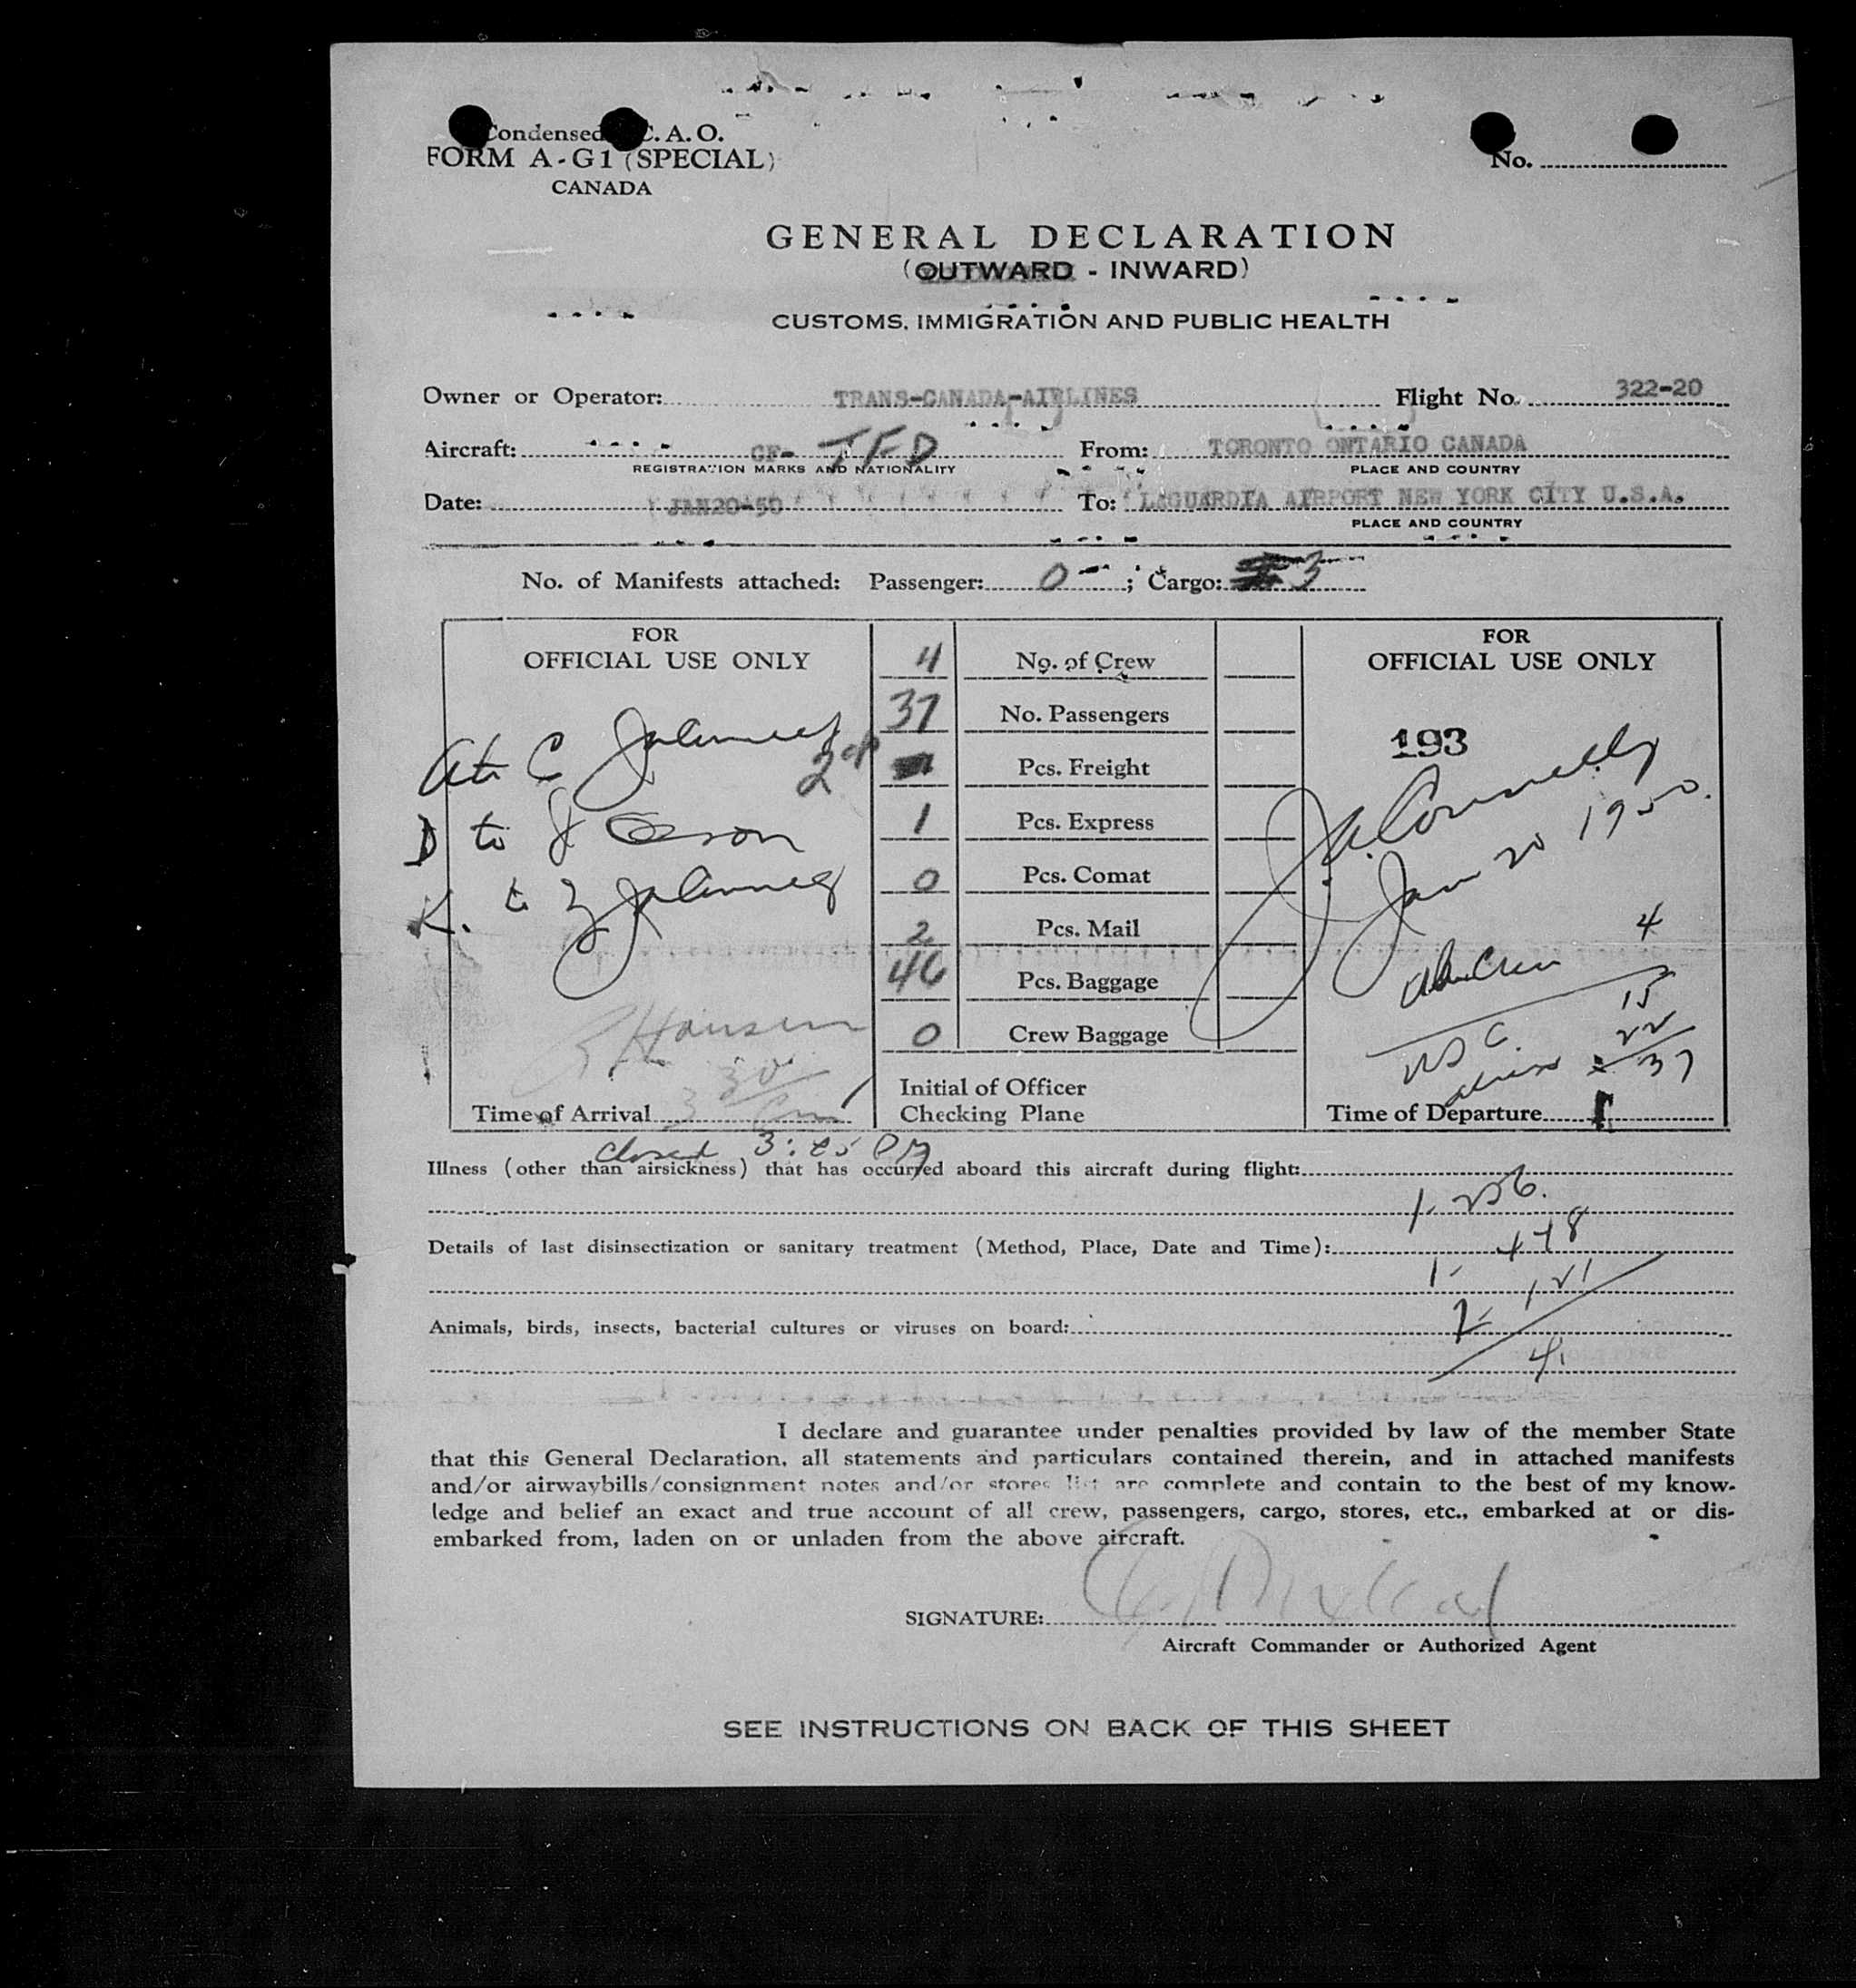 Condensed C. A. O.
FORM A-G1 (SPECIAL)
CANADA
No.
GENERAL DECLARATION
(OUTWARD - INWARD)
CUSTOMS, IMMIGRATION AND PUBLIC HEALTH
Owner or Operator: TRANS-CANADA-AIRLINES Flight No. 322-20
Aircraft: CF- TFD From: TORONTO ONTARIO CANADA
REGISTRATION MARKS AND NATIONALITY PLACE AND COUNTRY
Date: JAN20-50 To: LAGUARDIA AIRPORT NEW YORK CITY U.S.A.
PLACE AND COUNTRY
No. of Manifests attached: Passenger: 0 ; Cargo: 3
FOR
OFFICIAL USE ONLY
4 No. of Crew
37 No. Passengers
Pcs. Freight
1 Pcs. Express
0 Pcs. Comat
2 Pcs. Mail
46 Pcs. Baggage
0 Crew Baggage
Initial of Officer
Checking Plane
D to
Hansen
3 30
Time of Arrival
FOR
OFFICIAL USE ONLY
193
J. A. Connelly
Jan 20 1950.
Crew 4
USC 15
22
37
Time of Departure
closed 3: PM
Illness (other than airsickness) that has occurred aboard this aircraft during flight:
1- 256.
Details of last disinsectization or sanitary treatment (Method, Place, Date and Time):
1- 478
2- 121
Animals, birds, insects, bacterial cultures or viruses on board:
4
I declare and guarantee under penalties provided by law of the member State
that this General Declaration, all statements and particulars contained therein, and in attached manifests
and/or airwaybills/consignment notes and/or stores list are complete and contain to the best of my know-
ledge and belief an exact and true account of all crew, passengers, cargo, stores, etc., embarked at or dis-
embarked from, laden on or unladen from the above aircraft.
SIGNATURE:
Aircraft Commander or Authorized Agent
SEE INSTRUCTIONS ON BACK OF THIS SHEET